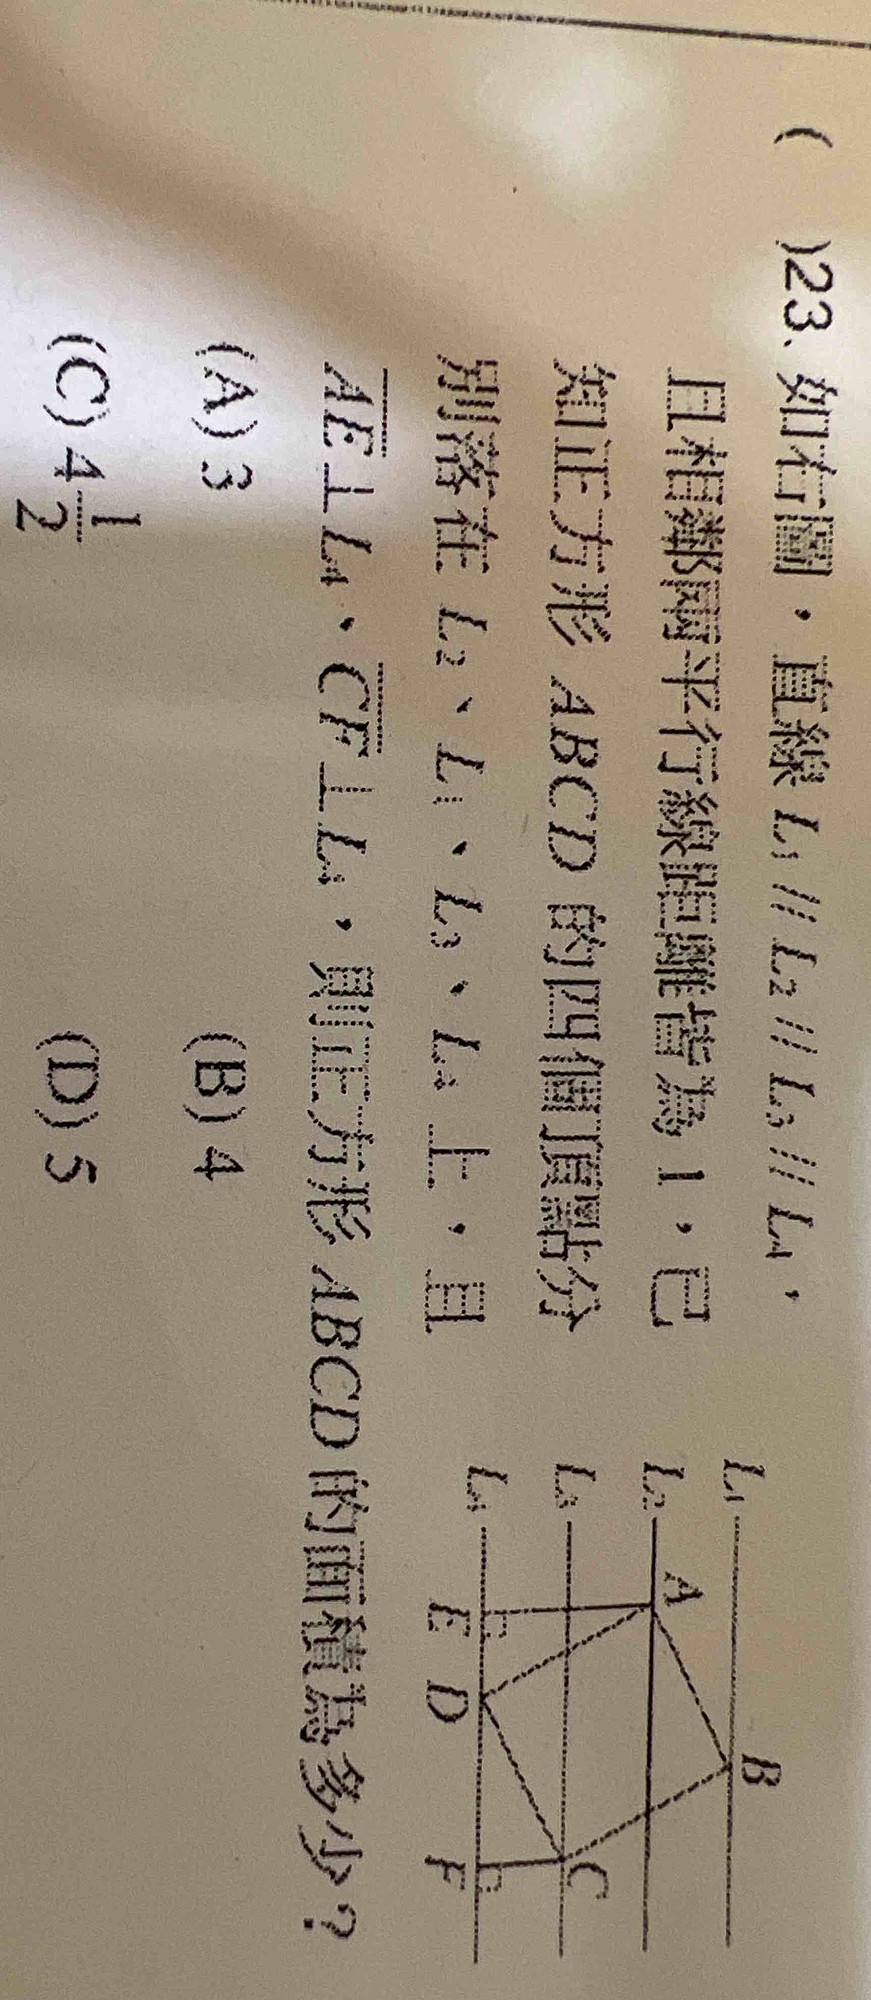 (　)23. 如右圖，直線 L₁ // L₂ // L₃ // L₄，
且相鄰兩平行線距離皆為 1，已
知正方形 ABCD 的四個頂點分
別落在 L₂、L₁、L₃、L₄ 上，且
AE⊥L₄、CF⊥L₄，則正方形 ABCD 的面積為多少？
(A) 3　(B) 4
(C) 4 1/2　(D) 5
L₁
B
L₂
A
L₃
C
L₄
E D F